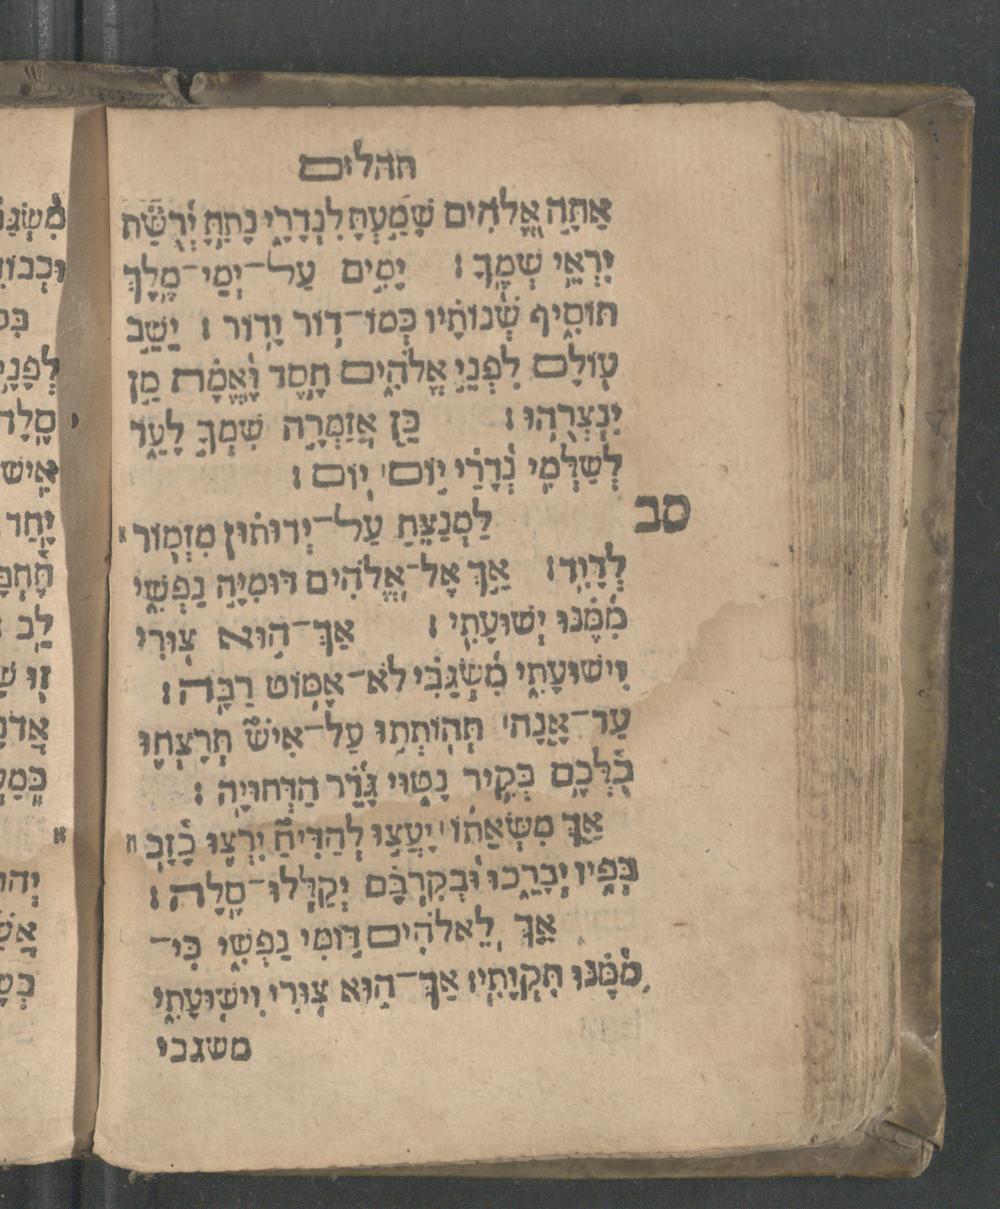 תהלים
אַתָּה אֱלֹהִים שָׁמַעְתָּ לִנְדָרָי נָתַתָּ יְרֻשַּׁת
יִרְאֵי שְׁמֶךָ׃ יָמִים עַל־יְמֵי־מֶלֶךְ
תּוֹסִיף שְׁנוֹתָיו כְּמוֹ־דוֹר וָדוֹר׃ יֵשֵׁב
עוֹלָם לִפְנֵי אֱלֹהִים חֶסֶד וֶאֱמֶת מַן
יִנְצְרֻהוּ׃ כֵּן אֲזַמְּרָה שִׁמְךָ לָעַד
לְשַׁלְּמִי נְדָרַי יוֹם׀ יוֹם׃
סב
לַמְנַצֵּחַ עַל־יְדוּתוּן מִזְמוֹר
לְדָוִד׃ אַךְ אֶל־אֱלֹהִים דּוּמִיָּה נַפְשִׁי
מִמֶּנּוּ יְשׁוּעָתִי׃ אַךְ־הוּא צוּרִי
וִישׁוּעָתִי מִשְׂגַּבִּי לֹא־אֶמּוֹט רַבָּה׃
עַד־אָנָה׀ תְּהוֹתְתוּ עַל־אִישׁ תְּרָצְּחוּ
כֻלְּכֶם כְּקִיר נָטוּי גָּדֵר הַדְּחוּיָה׃
אַךְ מִשְּׂאֵתוֹ׀ יָעֲצוּ לְהַדִּיחַ יִרְצוּ כָזָב
בְּפִיו יְבָרֵכוּ וּבְקִרְבָּם יְקַלְלוּ־סֶלָה׃
אַךְ לֵאלֹהִים דּוֹמִּי נַפְשִׁי כִּי־
מִמֶּנּוּ תִּקְוָתִי׃ אַךְ־הוּא צוּרִי וִישׁוּעָתִי
משגבי